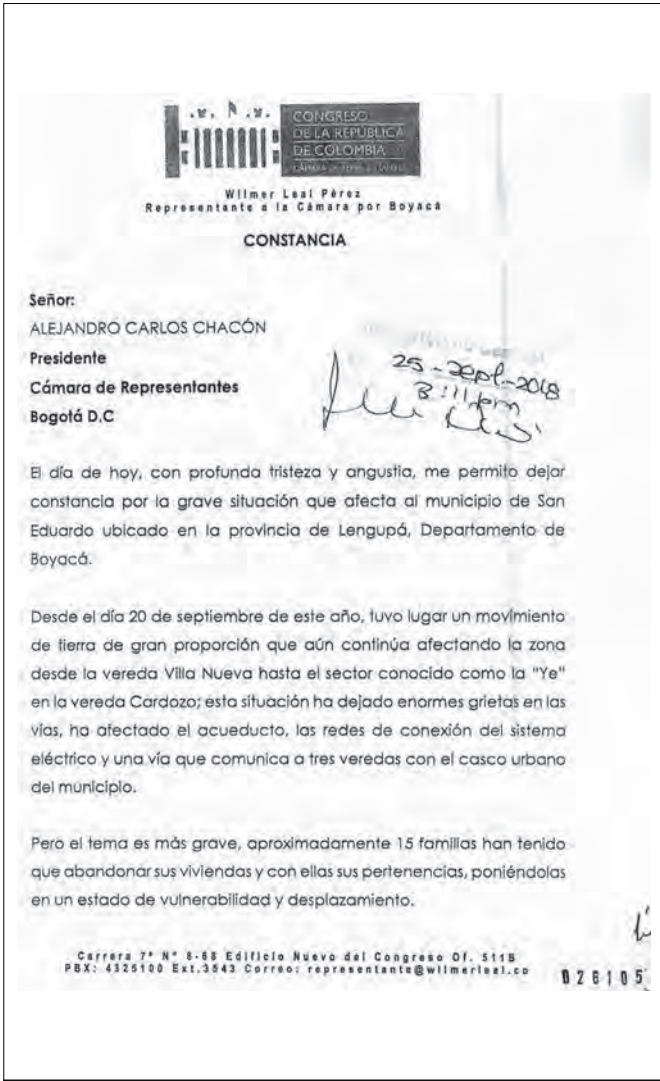 CONGRESO
DE LA REPÚBLICA
DE COLOMBIA
Wilmer Leal Pérez
Representante a la Cámara por Boyacá
CONSTANCIA
Señor:
ALEJANDRO CARLOS CHACÓN
Presidente
Cámara de Representantes
Bogotá D.C
25-Sept-2018
3:11pm
El día de hoy, con profunda tristeza y angustia, me permito dejar
constancia por la grave situación que afecta al municipio de San
Eduardo ubicado en la provincia de Lengupá, Departamento de
Boyacá.
Desde el día 20 de septiembre de este año, tuvo lugar un movimiento
de tierra de gran proporción que aún continúa afectando la zona
desde la vereda Villa Nueva hasta el sector conocido como la "Ye"
en la vereda Cardozo; esta situación ha dejado enormes grietas en las
vías, ha afectado el acueducto, las redes de conexión del sistema
eléctrico y una vía que comunica a tres veredas con el casco urbano
del municipio.
Pero el tema es más grave, aproximadamente 15 familias han tenido
que abandonar sus viviendas y con ellas sus pertenencias, poniéndolas
en un estado de vulnerabilidad y desplazamiento.
Carrera 7ª Nº 8-68 Edificio Nuevo del Congreso Of. 511B
PBX: 4325100 Ext.3543 Correo: representante@wilmerleal.co
026105